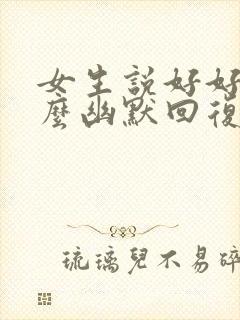 女生説好好
麼幽默回復
琉璃兒不易碎